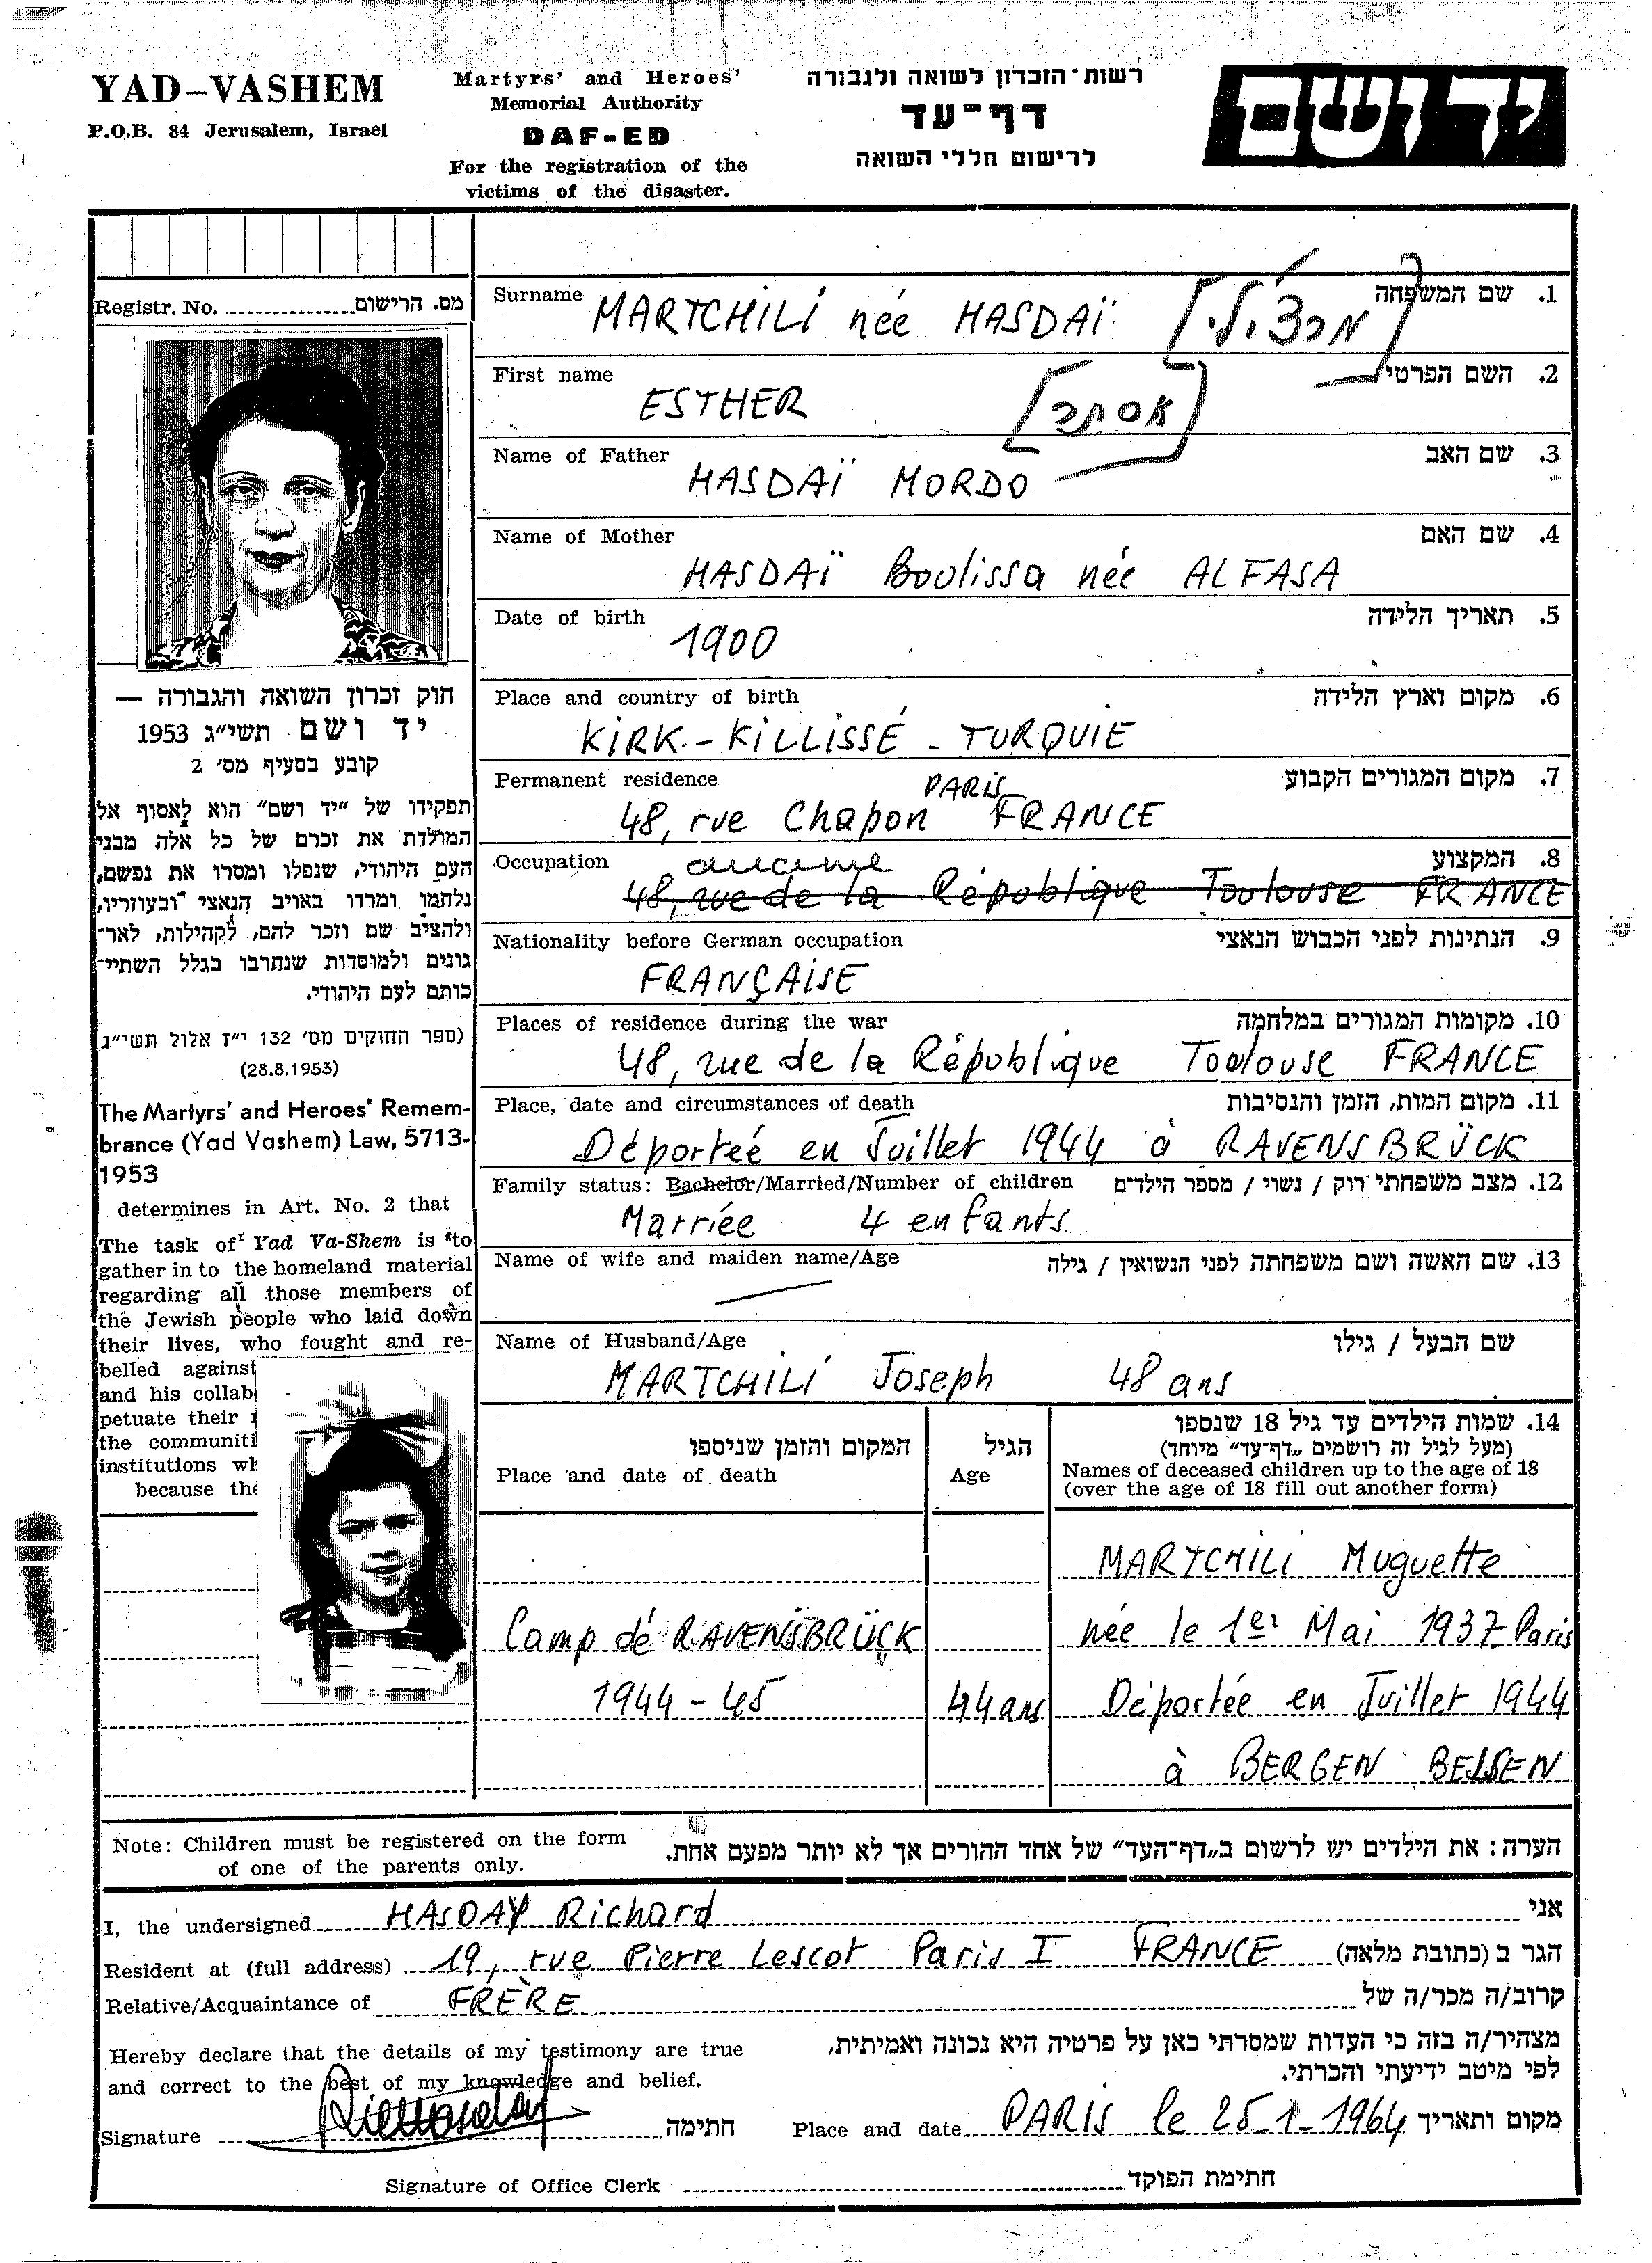 YAD-VASHEM
P.O.B. 84 Jerusalem, Israel
Martyrs' and Heroes'
Memorial Authority
DAF-ED
For the registration of the
victims of the disaster.
רשות־הזכרון לשואה ולגבורה
דף־עד
לרישום חללי השואה
יד ושם
Registr. No. מס. הרישום
Surname MARTCHILI née HASDAÏ [מרצ'ילי] 1. שם המשפחה
First name ESTHER [אסתר] 2. השם הפרטי
Name of Father HASDAÏ MORDO 3. שם האב
Name of Mother HASDAÏ Boulissa née ALFASA 4. שם האם
Date of birth 1900 5. תאריך הלידה
Place and country of birth 6. מקום וארץ הלידה
KIRK-KILLISSÉ - TURQUIE
Permanent residence 7. מקום המגורים הקבוע
48, rue Chapon PARIS FRANCE
Occupation aucune 8. המקצוע
48, rue de la République Toulouse FRANCE
Nationality before German occupation 9. הנתינות לפני הכבוש הנאצי
FRANÇAISE
Places of residence during the war 10. מקומות המגורים במלחמה
48, rue de la République Toulouse FRANCE
Place, date and circumstances of death 11. מקום המות, הזמן והנסיבות
Déportée en Juillet 1944 à RAVENSBRÜCK
Family status: Bachelor/Married/Number of children 12. מצב משפחתי רוק / נשוי / מספר הילדים
Marriée 4 enfants
Name of wife and maiden name/Age 13. שם האשה ושם משפחתה לפני הנשואין / גילה
Name of Husband/Age שם הבעל / גילו
MARTCHILI Joseph 48 ans
חוק זכרון השואה והגבורה —
יד ושם תשי״ג 1953
קובע בסעיף מס׳ 2
תפקידו של ״יד ושם״ הוא לאסוף אל
המולדת את זכרם של כל אלה מבני
העם היהודי, שנפלו ומסרו את נפשם,
נלחמו ומרדו באויב הנאצי ובעוזריו,
ולהציב שם וזכר להם, לקהילות, לאר־
גונים ולמוסדות שנחרבו בגלל השתיי־
כותם לעם היהודי.
(ספר החוקים מס׳ 132 י״ז אלול תשי״ג
(28.8.1953)
The Martyrs' and Heroes' Remem-
brance (Yad Vashem) Law, 5713-
1953
determines in Art. No. 2 that
The task of Yad Va-Shem is "to
gather in to the homeland material
regarding all those members of
the Jewish people who laid down
their lives, who fought and re-
belled against
and his collab
petuate their
the communiti
institutions wh
because the
המקום והזמן שניספו
Place and date of death
הגיל
Age
14. שמות הילדים עד גיל 18 שנספו
(מעל לגיל זה רושמים ״דף־עד״ מיוחד)
Names of deceased children up to the age of 18
(over the age of 18 fill out another form)
MARTCHILI Muguette
Camp de RAVENSBRÜCK née le 1er Mai 1937 Paris
1944-45 44 ans Déportée en Juillet 1944
à BERGEN BELSEN
Note: Children must be registered on the form
of one of the parents only.
הערה: את הילדים יש לרשום ב״דף־העד״ של אחד ההורים אך לא יותר מפעם אחת.
I, the undersigned HASDAY Richard אני
Resident at (full address) 19, rue Pierre Lescot Paris I FRANCE הגר ב (כתובת מלאה)
Relative/Acquaintance of FRÈRE קרוב/ה מכר/ה של
Hereby declare that the details of my testimony are true
and correct to the best of my knowledge and belief.
מצהיר/ה בזה כי העדות שמסרתי כאן על פרטיה היא נכונה ואמיתית,
לפי מיטב ידיעתי והכרתי.
Signature חתימה Place and date PARIS le 25-1-1964 מקום ותאריך
Signature of Office Clerk חתימת הפוקד